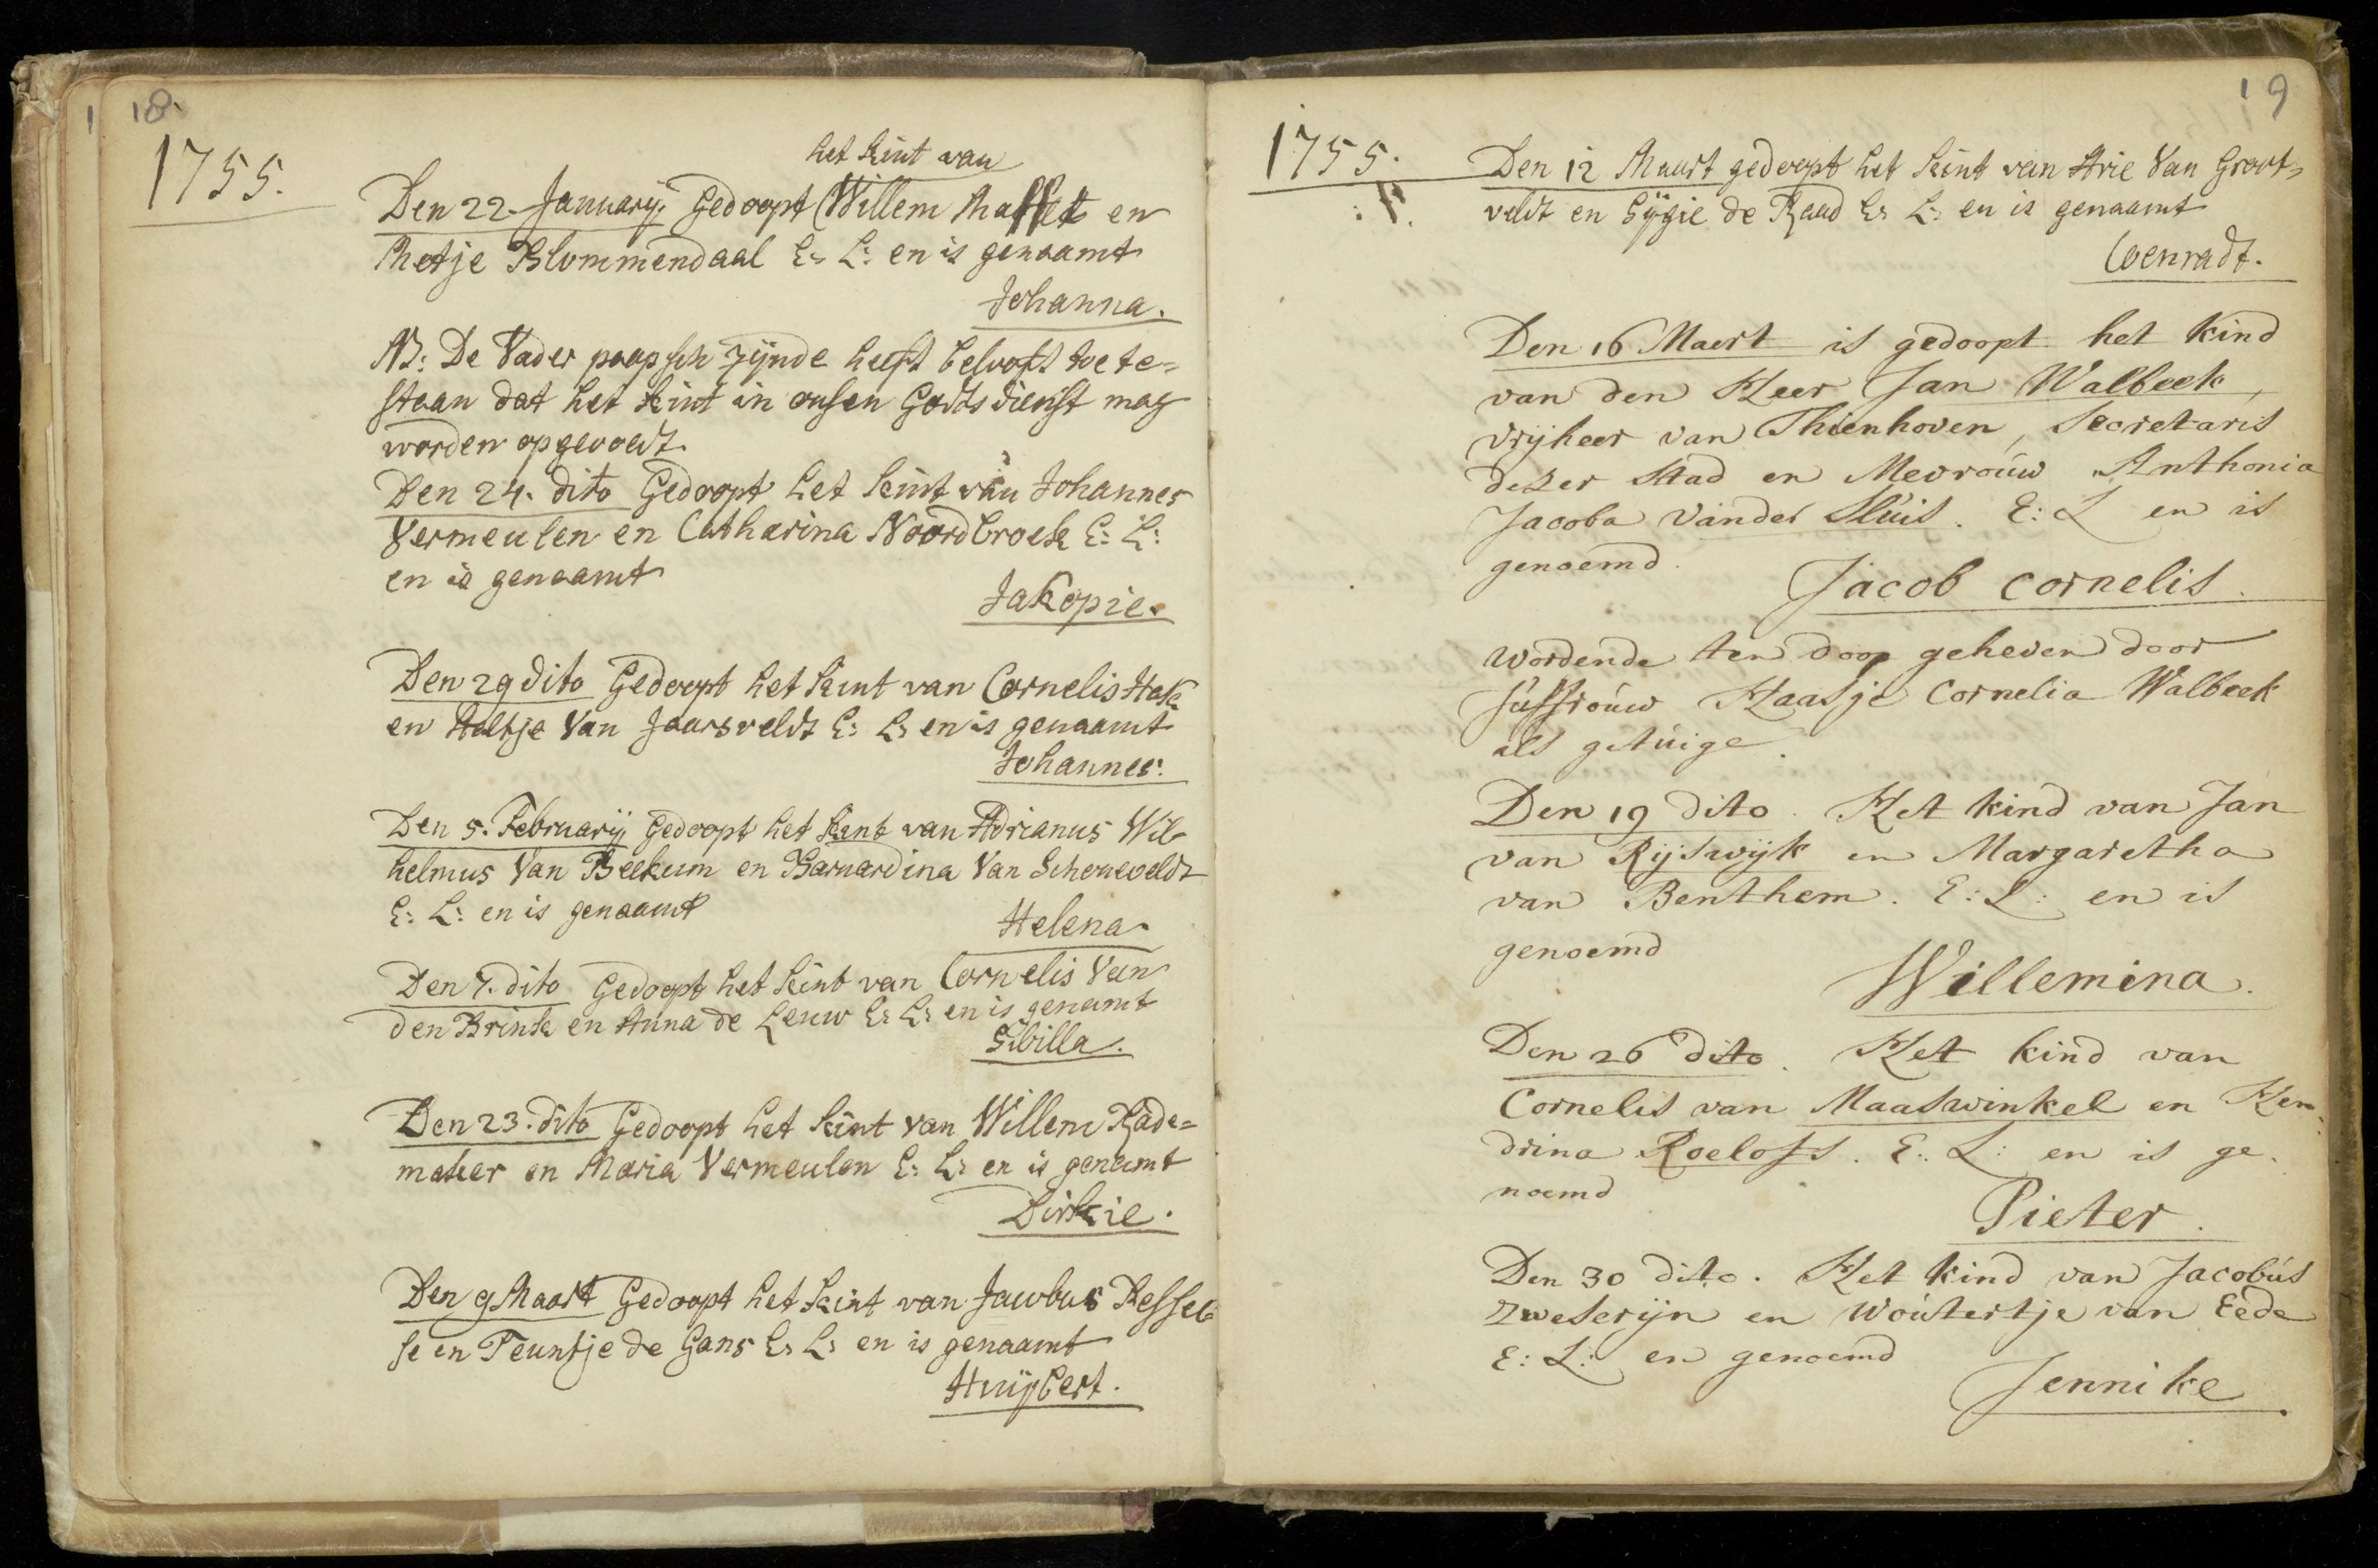 18.
1755.
het kint van
Den 22. Januarij. Gedoopt (Willem Maffet en
Metje Blommendaal E: L: en is genaamt
Johanna.
NB: De Vader paapsch zijnde heeft belooft toe te=
staan dat het kint in onsen Godtsdienst mag
worden opgevoedt
Den 24. dito Gedoopt het kint van Johannes
Vermeulen en Catharina Noordbroek E: L:
en is genaamt
Jakopie.
Den 29 dito Gedoopt het kint van Cornelis Hak
en Aeltje Van Jaarsveldt E: L: en is genaamt
Johannes.
Den 5. Februarij Gedoopt het kint van Adrianus Wil-
helmus Van Beekum en Barnardina Van Schoneveldt
E: L: en is genaamt
Helena.
Den 7. dito Gedoopt het kint van Cornelis Van
den Brink en Anna de Leuw E: L: en is genaamt
Sibilla.
Den 23. dito Gedoopt het kint van Willem Rade=
maker en Maria Vermeulen E: L: en is genaamt
Dirkie.
Den 9 Maart Gedoopt het kint van Jacobus Kessel
se en Teuntje de Gans E: L: en is genaamt
Huijbert.
19
1755.
Den 12 Maart gedoopt het kint van Arie Van Groot=
veldt en Sijgie de Raad E: L: en is genaamt
Coenradt.
Den 16 Maert is gedoopt het kind
van den Heer Jan Walbeek,
vrijheer van Thienhoven, Secretaris
dezer Stad en Mevrouw Anthonia
Jacoba Vander Sluis. E: L en is
genoemd.
Jacob Cornelis.
wordende ten doop geheven door
Juffrouw Haasje Cornelia Walbeek
als getuige.
Den 19 dito. Het kind van Jan
van Rijswijk en Margaretha
van Benthem. E: L: en is
genoemd
Willemina.
Den 26 dito. Het kind van
Cornelis van Maaswinkel en Hen-
drina Roelofs. E: L: en is ge-
noemd
Pieter.
Den 30 dito. Het kind van Jacobus
Zweserijn en Woutertje van Eede
E: L: en genoemd
Jennike.